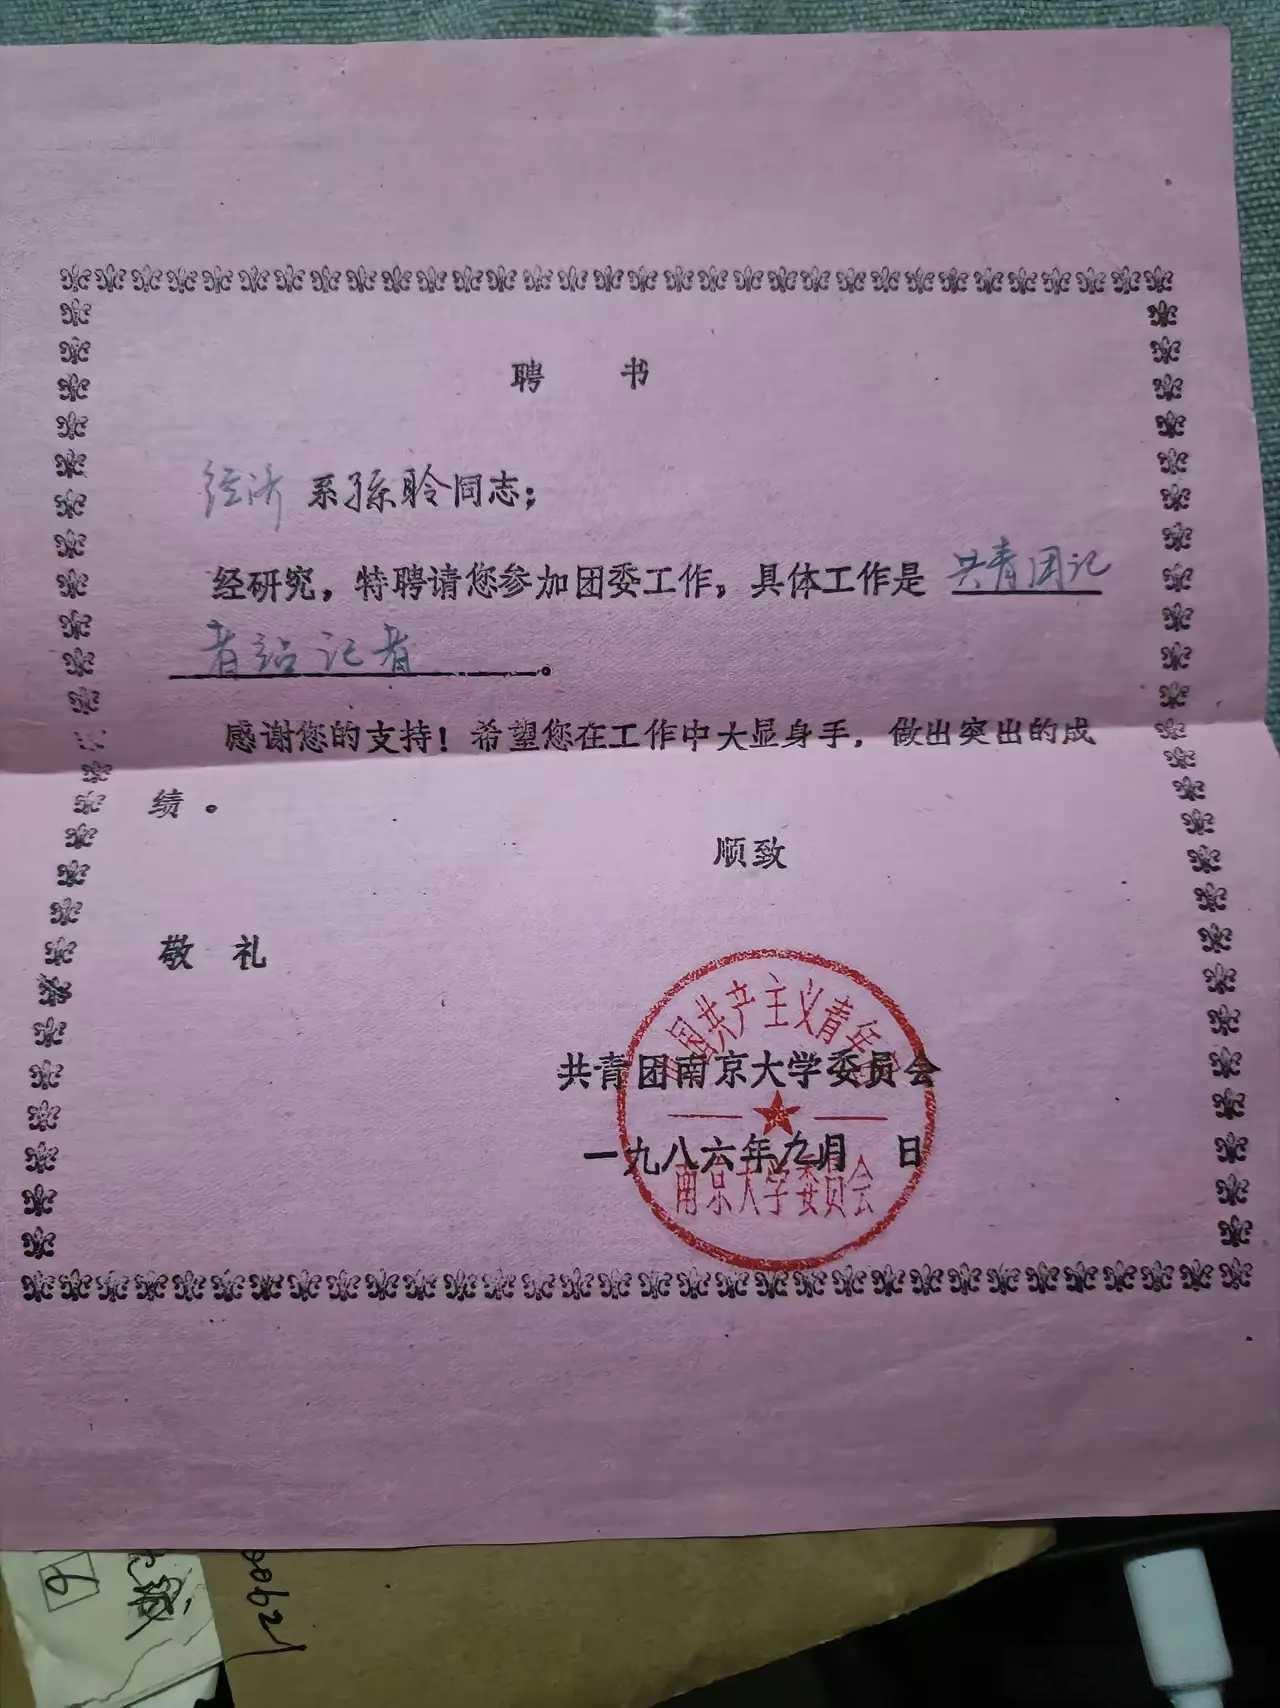 聘 书
经济系孙聆同志;
经研究，特聘请您参加团委工作，具体工作是 共青团记
者站记者。
感谢您的支持！希望您在工作中大显身手，做出突出的成
绩。
顺致
敬 礼
国共产主义青年
共青团南京大学委员会
一九八六年九月 日
南京大学委员会